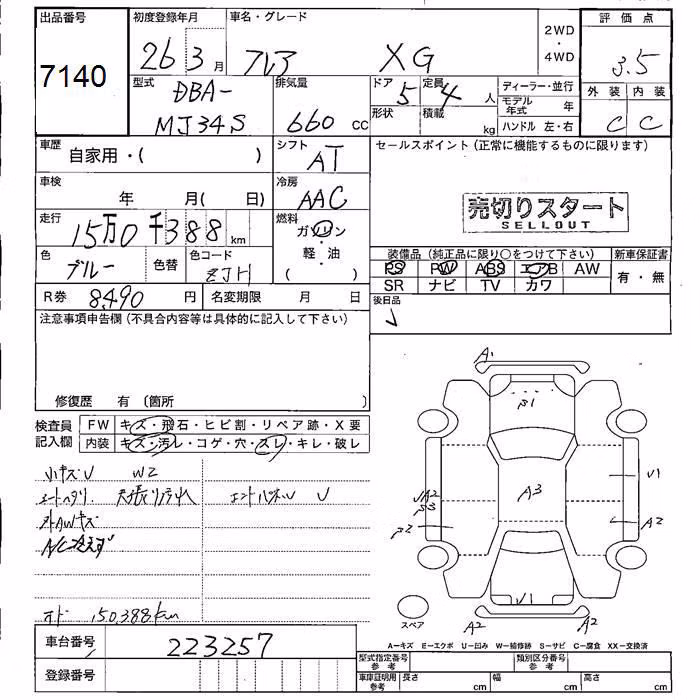 出品番号
7140
初度登録年月
26 3 月
車名・グレード
フレア XG
2WD
・
4WD
評価点
3.5
外装 内装
C C
型式
DBA-
MJ34S
排気量
660 cc
ドア 5
形状
定員 4 人
積載 kg
ディーラー・並行
モデル年式 年
ハンドル 左・右
車歴
自家用・( )
シフト
AT
セールスポイント (正常に機能するものに限ります)
売切りスタート
SELLOUT
車検
年 月( 日)
冷房
AAC
走行
15万0千388 km
燃料
ガソリン
軽・油
( )
色
ブルー
色替
色コード
ZJH
装備品 (純正品に限り○をつけて下さい)
新車保証書
PS PW ABS エアB AW
有・無
SR ナビ TV カワ
R券 8490 円
名変期限 月 日
後日品
注意事項申告欄 (不具合内容等は具体的に記入して下さい)
修復歴 有 (箇所 )
検査員
記入欄
FW キズ・飛石・ヒビ割・リペア跡・X要
内装 キズ・汚レ・コゲ・穴・スレ・キレ・破レ
小キズU W2
シートヘタリ 天張り汚れ エンドパネルU U
外AWキズ
A/C冷えず
オド 150,388km
A1
β1
A3
U1
UA2
β3
β2
A2
U1
A2
A2
スペア
A-キズ E-エクボ U-凹み W-補修跡 S-サビ C-腐食 XX-交換済
車台番号 223257
登録番号
型式指定番号
参考
類別区分番号
参考
車庫証明用
参考
長さ cm 幅 cm 高さ cm